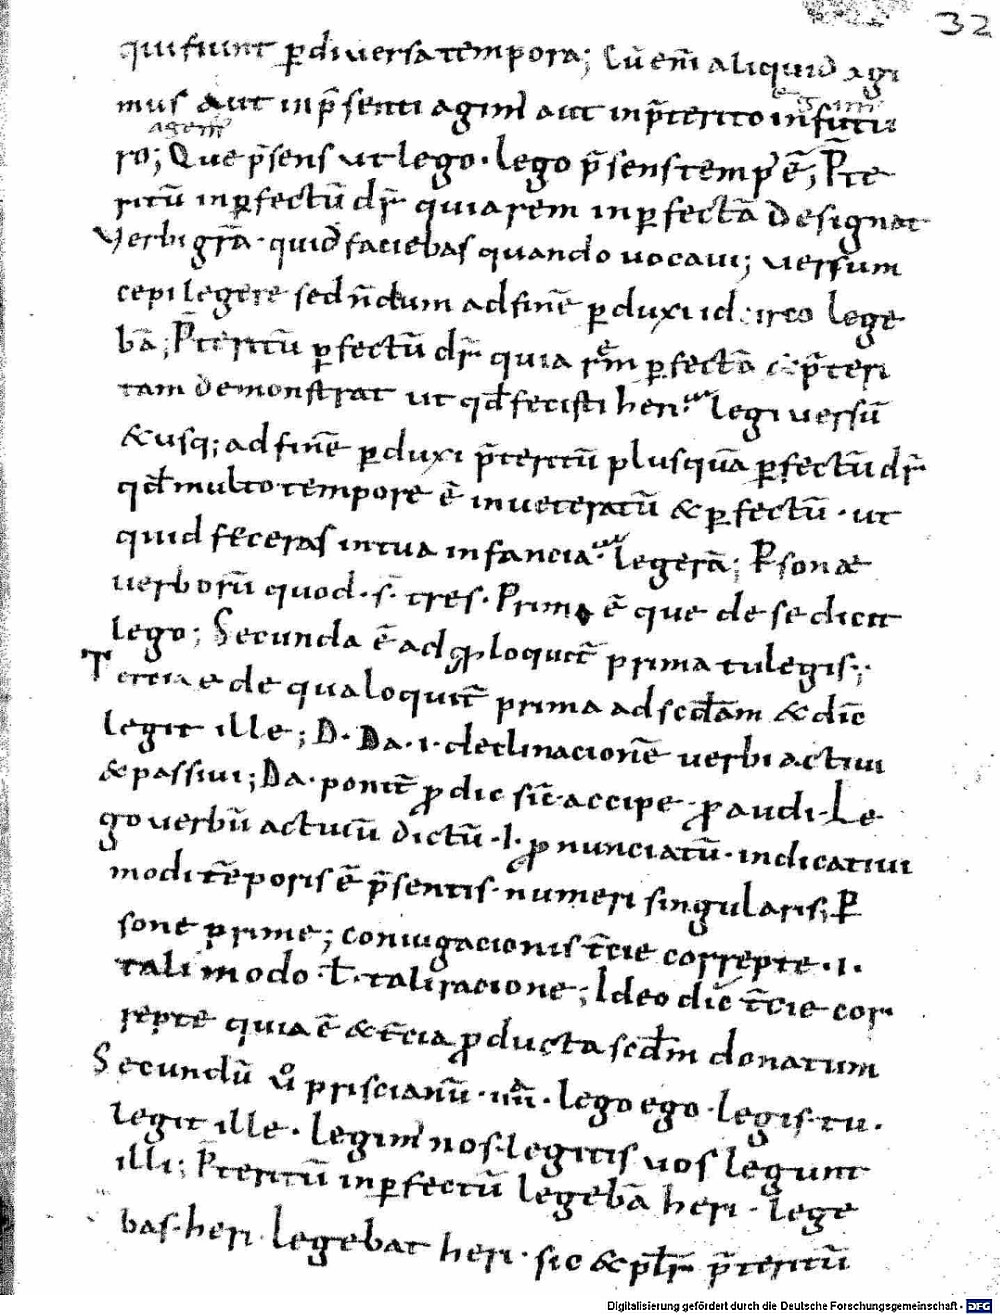 32
qui fiunt p̱ diuersa tempora; Cū eni̅ aliquid agi
mus aut inp̄senti agim᾽ aut inp̄terito in futu
agem᾽
ro; Que p̄sens ut lego · lego p̄sens temp᾽ ē; P̄te
ritū inp̱fectū dr̄ quia rem inp̱fectā designat
Verbi gr̄a · quid faciebas quando uocaui; uersum
cepi legere sed n̄dum ad finē p̱duxi id circo lege
bā; P̄teritū p̱fectū dr̄ quia rem p̱fectā & p̄teri
tam demonstrat ut qđ fecisti heri · legi uersū
& usq; ad finē p̱duxi p̄teritū plusquā p̱fectū dr̄
qđ multo tempore ē inueteratū & p̱fectū · ut
quid feceras in tua infancia · legerā; P̱sonæ
uerborū quod · s̄ · tres · Prima ē que de se dicit
lego; Secunda ē ad quā loquit᾽ prima tu legis;
Tercia e de qua loquit᾽ prima ad scđam & dic̄
legit ille; D · Da · i · declinacionē uerbi actiui
& passiui; Da · ponit᾽ ꝓ dic sic̄ accipe · ꝓ audi · Le
go uerbū actiuū dictū · i · ꝓnunciatū · indicatiui
modi tēporis ē p̄sentis · numeri singularis; P̱
sone prime; coniugacionis t̄cie correpte · i ·
tali modo · ł · tali racione; Ideo dic̄ t̄cie cor
repte quia ē & t̄cia ꝓducta scđm donatum
Secundū ů priscianū · iiii · lego ego · legis · tu ·
legit ille · legim᾽ nos · legitis uos legunt
illi; P̄teritū inp̱fectū legebā heri · lege
bas · heri · legebat heri · sic & plr̄ p̄teritū
Digitalisierung gefördert durch die Deutsche Forschungsgemeinschaft - DFG